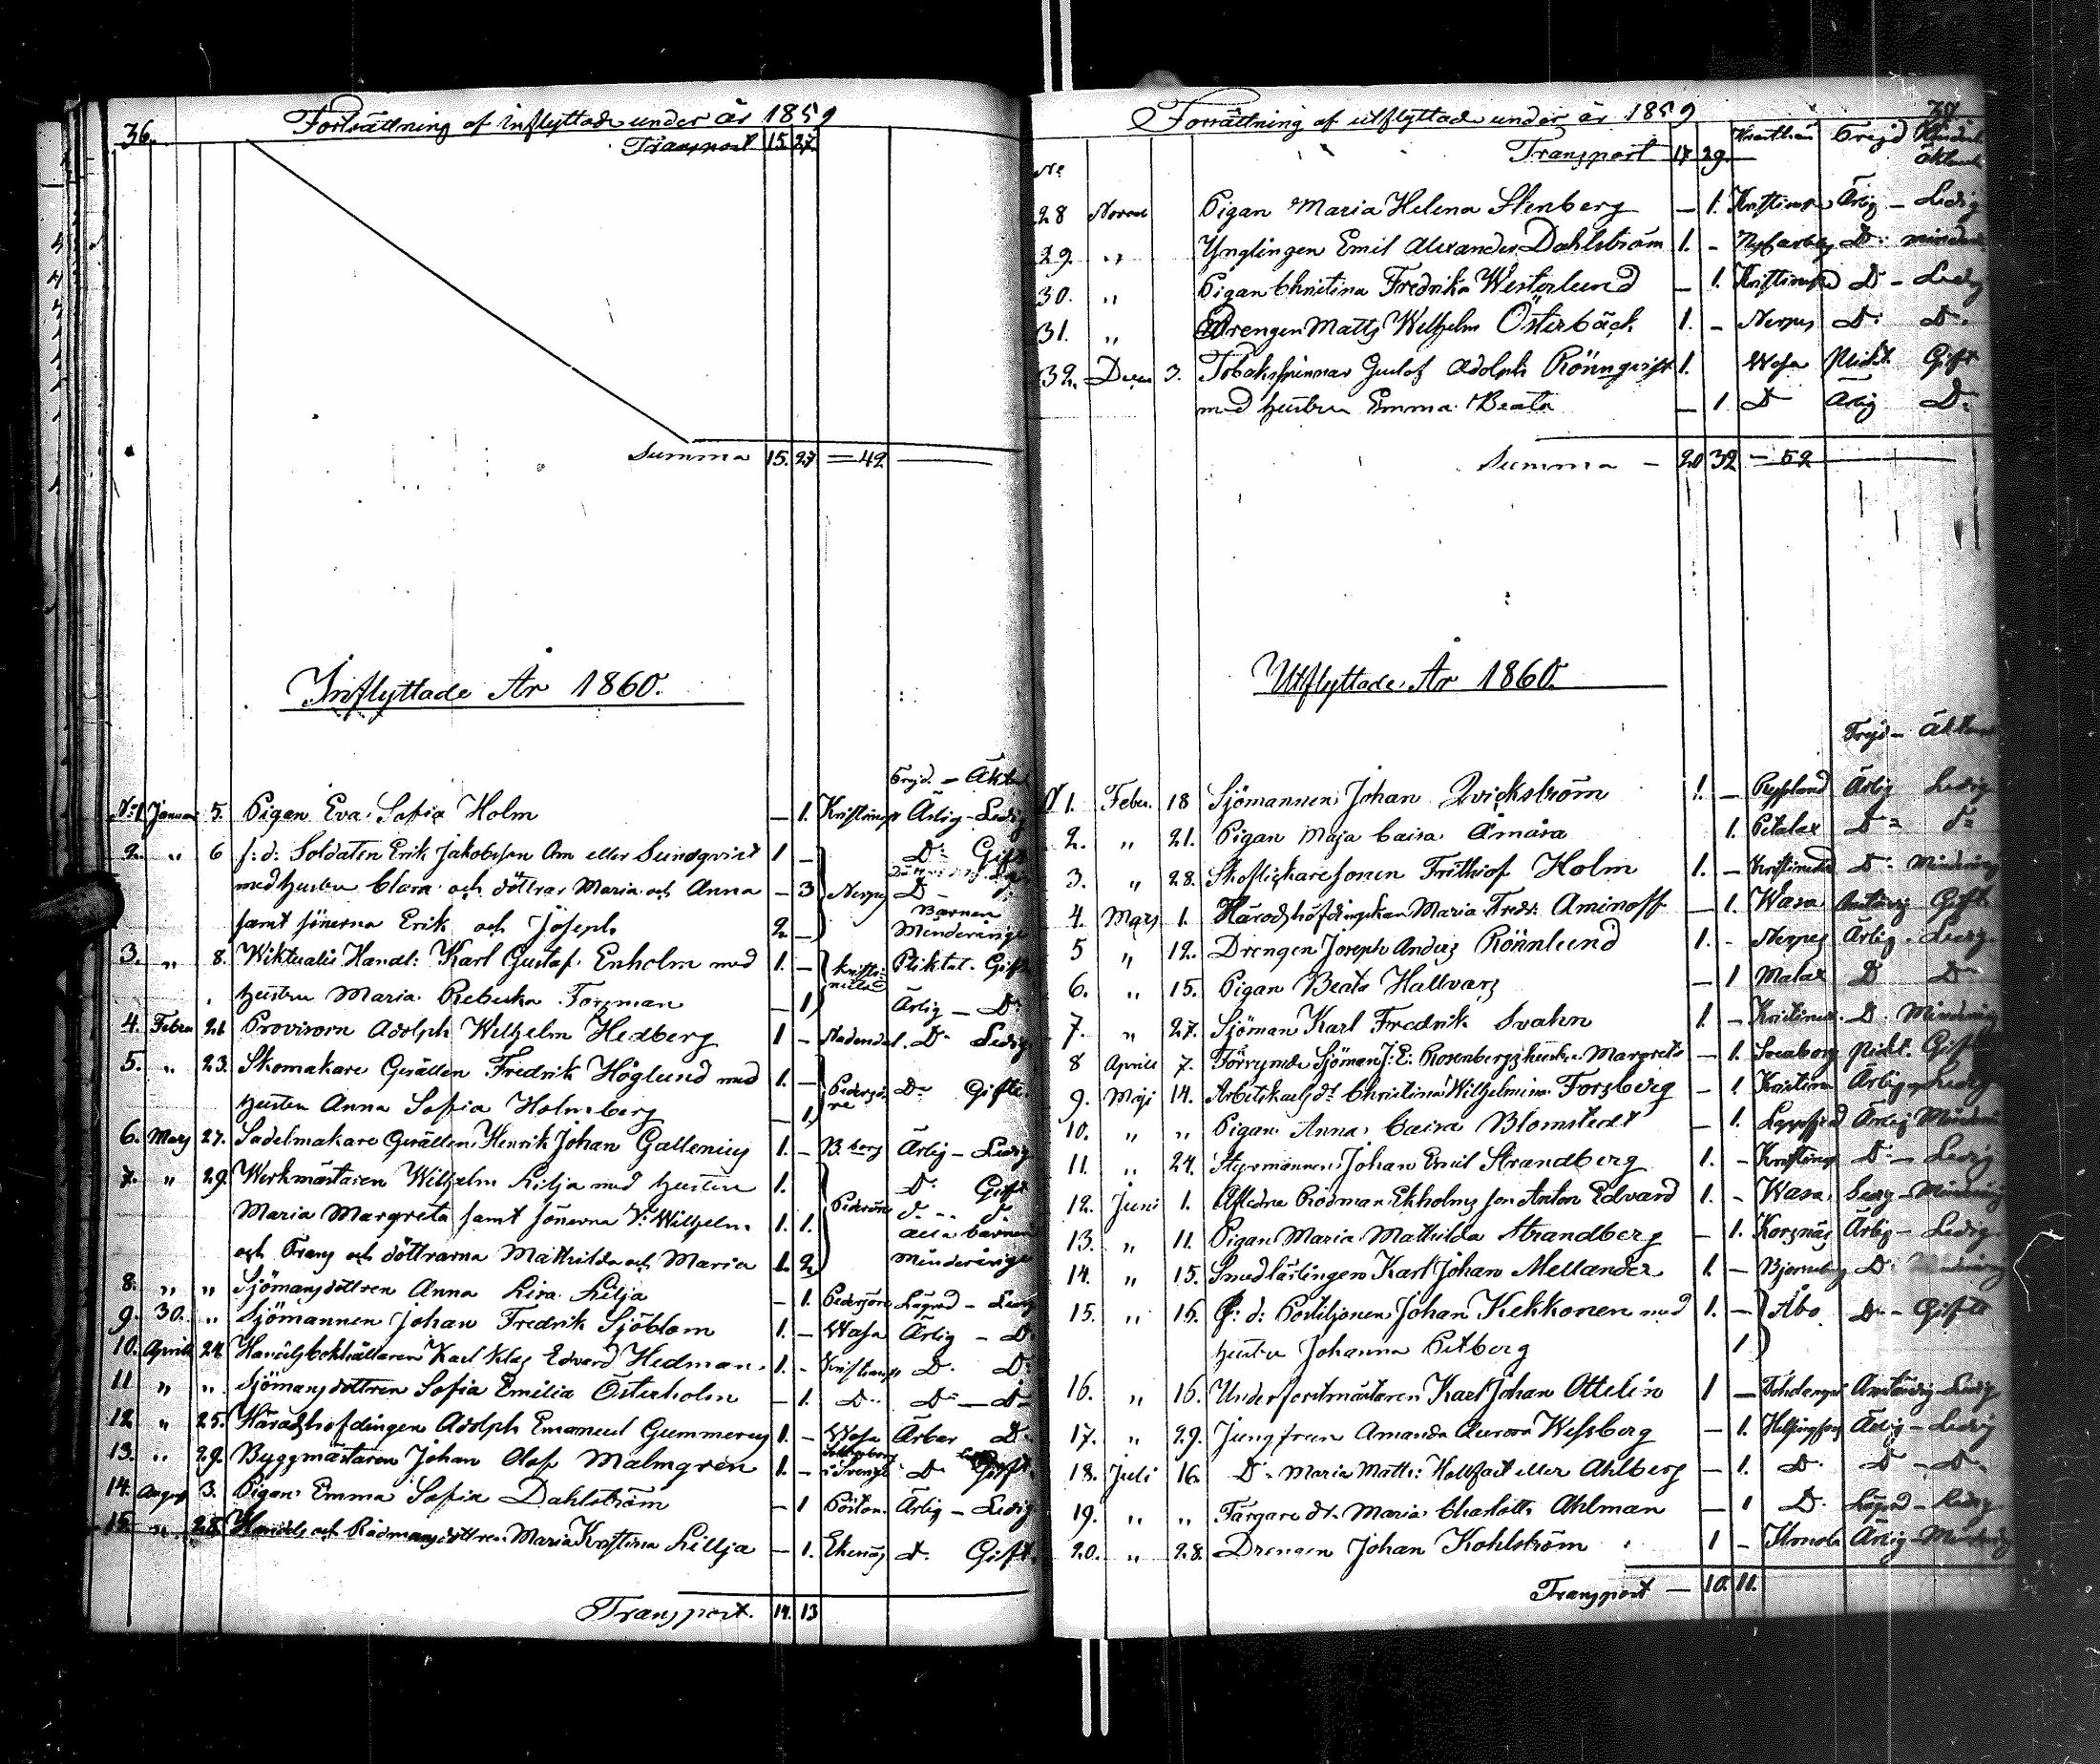 36.
Fortsättning af Inflyttade under år 1859
Transport 15. 27.
Summa 15. 27 = 42
Inflyttade År 1860.
Frejd. - Äkten
N:1 Januar 5. Pigan Eva Sofia Holm — 1. Ärlig - Ledig
2. " 6 f: d: Soldaten Erik Jakobsson Am eller Sundqvist 1 — D:o Gift
med hustru Clara och döttrar Maria och Anna — 3 Nerpes D:o
samt sönerna Erik och Joseph 2 — Barnen Minderårige
3. " 8. Wiktualie Handl: Karl Gustaf Enholm med 1. — Gift
hustru Maria Rebecka Forsman — 1 Ärlig — D:o
4. Febru 21 Provisorn Adolph Wilhelm Hedberg 1 — D:o Ledig
5. " 23. Skomakare Gesällen Fredrik Höglund med 1. — Pedersöre D:o Gifte
hustru Anna Sofia Holmberg — 1.
6. Mars 27. Sadelmakare Gesällen Henrik Johan Gallenius 1. — B.borg Ärlig — Ledig
7. " 29. Werkmästaren Wilhelm Lilja med hustru 1. D:o Gift
Maria Margreta samt sönerna Wilhelm 1. 1. Pedersöre alla barnen
och Frans och döttrarna Mathilda och Maria 1. 2. Minderårige
8. " " Sjömansdottren Anna Lisa Lilja — 1. Pedersöre Lägrad — Ledig
9. 30. " Sjömannen Johan Fredrik Sjöblom 1. — Wasa Ärlig — D:o
10. April 24 Handelsbokhållaren Karl Klas Edvard Hedman. 1. - D:o D:o
11 " " Sjömansdottren Sofia Emilia Österholm — 1. D:o D:o — D:o
12 " 25. Häradshöfdingen Adolph Emanuel Gummerus 1. — Wasa Ärbar D:o
13. " 29. Byggmästaren Johan Olof Malmgren 1. — D:o Gift
14. August 3. Pigan Emma Sofia Dahlström — 1 Ärlig — Ledig
15. " 28 Handels och Rådmansdottren Maria Kristina Lillja — 1. Ekenäs D:o Gift.
Transport. 14. 13
37
Fortsättning af utflyttade under år 1859
Transport 17 29
N:o Frejd
28 Novem Pigan Maria Helena Stenberg — 1. Ärlig — Ledig
29. " Ynglingen Emil Alexander Dahlström 1. - D:o
30. " Pigan Christina Fredrika Westerlund — 1. D:o — Ledig
31. " Drengen Matts Wilhelm Österbäck 1. - Nerpes D:o D:o
32. Decem 3. Tobaksspinnar Gustaf Adolph Rönnqvist 1. Wasa Gift
med hustru Emma Beata — 1 D:o Ärlig D:o
Summa — 20 32 — 52
Utflyttade År 1860.
Frejd — Äkten
N 1. Febr. 18 Sjömannen Johan Qvickström 1. — Ryssland Ärlig Ledig
2. " 21. Pigan Maja Caisa Åmåra 1. Petalax D:o d:o
3. " 28. Skoflickaresonen Frithiof Holm 1. — D:o
4. Mars 1. Häradshöfdingskan Maria Fredr: Aminoff — 1. Wasa Gift
5 " 12. Drengen Joseph Anders Rönnlund 1. - Nerpes Ärlig - Ledig
6. " 15. Pigan Beata Hallvars — 1 Malax D:o D:o
7. " 27. Sjöman Karl Fredrik Svahn 1. — D:o
8 April 7. Förrymde Sjöman J: E: Rosenbergs hustru Margreta — 1. Sveaborg
9. Maji 14. Christina Wilhelmina Forsberg — 1
10. " " Pigan Anna Caisa Blomstedt — 1. Lappfjerd Ärlig
11. " 24. Styrmannen Johan Emil Strandberg 1. — D:o — Ledig
12. Juni 1. Aflidne Rådman Ekholms son Anton Edvard 1. - Wasa
13. " 11. Pigan Maria Mathilda Strandberg — 1. Korsnäs Ärlig — Ledig
14. " 15. Smedlärlingen Karl Johan Mellander 1. — Bjerneborg D:o
15. " 15. f: d: Postiljonen Johan Kekkonen med 1. — Åbo D:o — Gifte
hustru Johanna Petberg 1
16. " 16. Underforstmästaren Karl Johan Ottelin 1 — Anständig Ledig
17. " 29. Jungfrun Amanda Aurora Wessberg — 1. Helsingfors Ärlig — Ledig
18. Juli 16. D:o Maria Math: eller Ahlberg — 1. D:o D:o — D:o
19. " " Färgare d:r Maria Charlotta Ahlman — 1 D:o Lägrad — Ledig
20. " 28. Drengen Johan Kohlström 1 — Ilmola Ärlig
Transport — 10. 11.